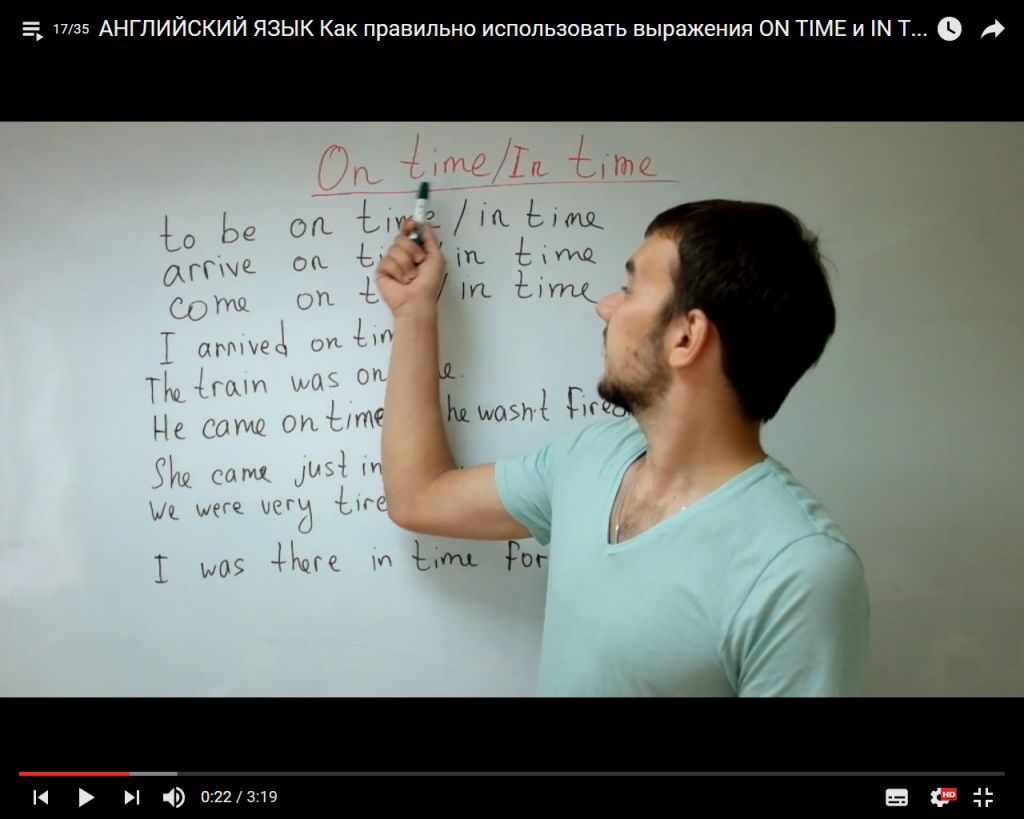 17/35 АНГЛИЙСКИЙ ЯЗЫК Как правильно использовать выражения ON TIME и IN T...
On time/In time
to be on time / in time
arrive on / in time
come on / in time
I arrived on
The train was on
He came on time he wasn't fired
She came just in
We were very
I was there in time for
0:22 / 3:19
HD